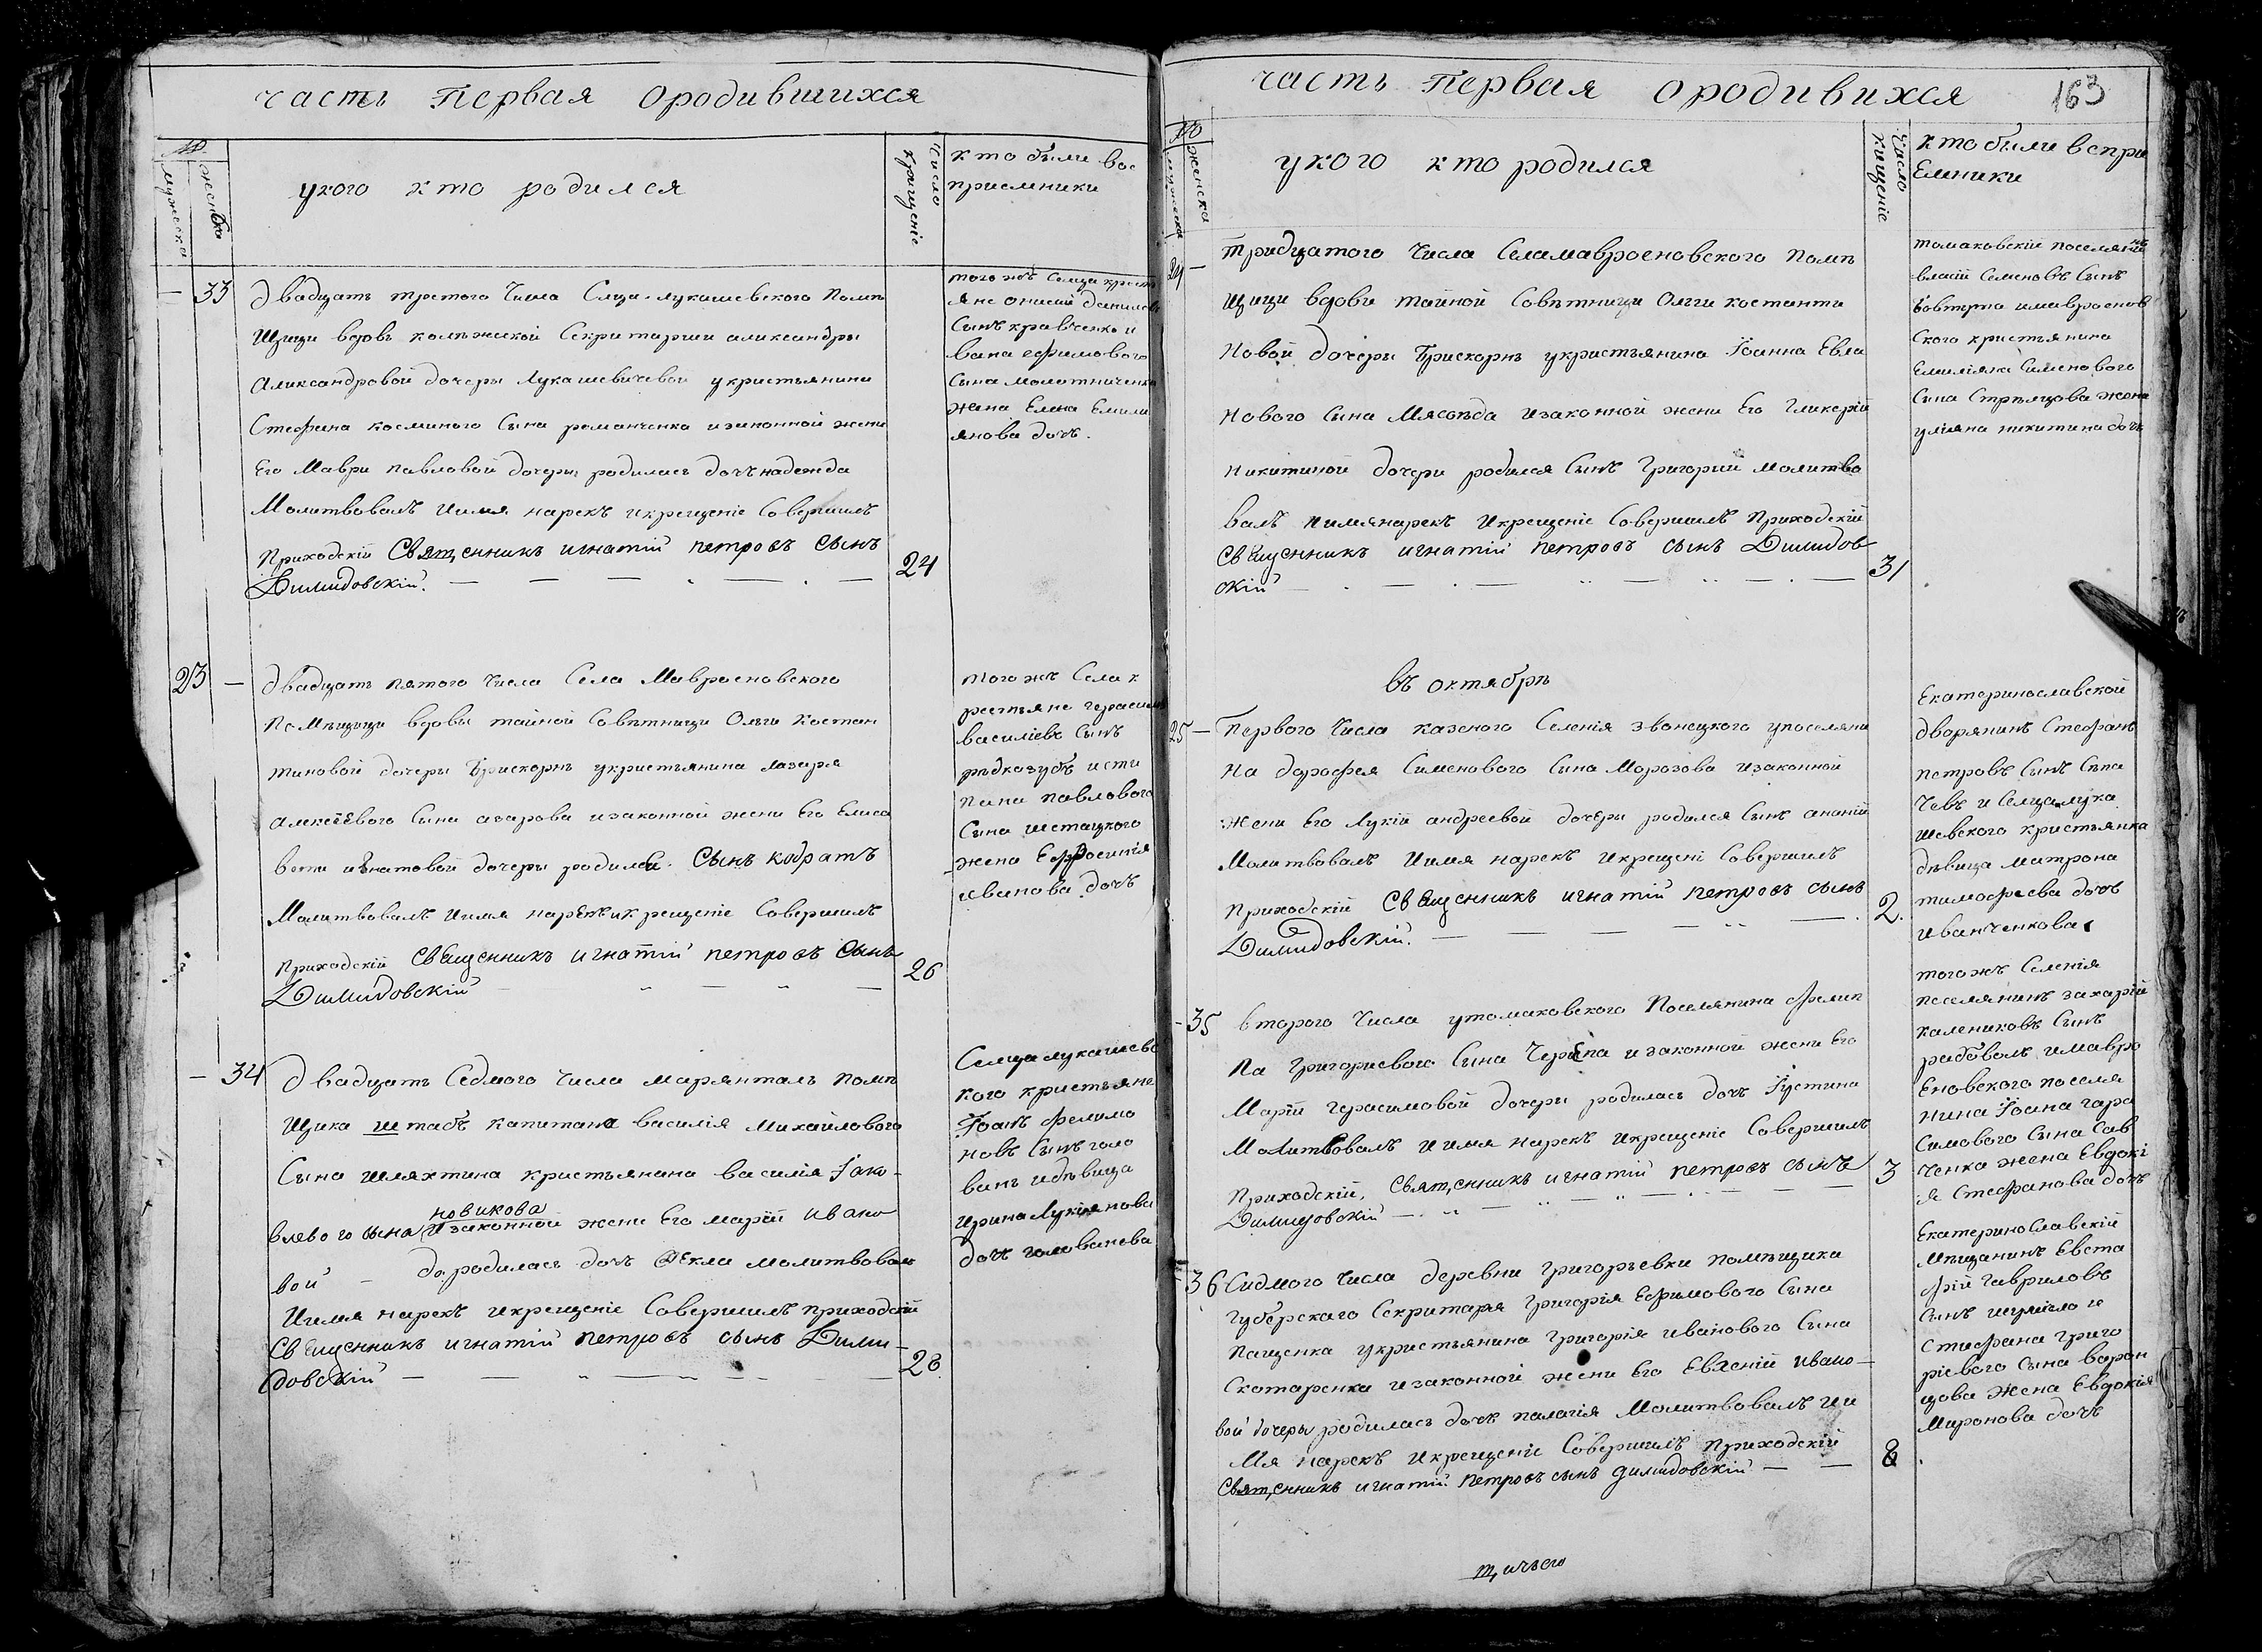 часть первая ородившихся
№
мужеска
женска
укого кто родился
число
крещенiе
кто были вос
приемники
33
двадцать третого числа Селца Лукашевского помѣ
щици вдовѣ колѣжской Секритарши александры
Александровой дочеры Лукашевичевой укристьянина
Стефана косминого Сына романченка изаконной жени
Его Маври павловой дочеры родилась дочъ надежда
Молитвовалъ иимя нарекъ икрещенiе Совершилъ
Приходскiй Священникъ игнатiй петровъ сынъ
Димидовскiй.
24
того жъ Селца крестъ
яне онисiй данилов
Сынъ кравченко и
вана ефимового
Сына молотниченка
жена Елена Емили
янова дочъ.
23
двадцать пятого числа Села Мавроеновского
помѣщици вдовы тайной Совѣтници Ольги Костан
тиновой дочеры Брискорнъ укристьянина лазаря
алексѣевого Сына азарова изаконной жени Его Елиса
вети игнатовой дочеры родился Сынъ кодратъ
Молитвовалъ иимя нарекъ икрещенiе Совершилъ
приходскiй Священникъ игнатiй петровъ сынъ
Димидовскiй
26
того жъ Села к
рестьяне герасим
василiевъ Сынъ
рѣдкозубъ исти
пана павлового
Сына шетацкого
жена Ефросинiя
иванова дочъ
34
двадцать Седмого числа марянталь помѣ
щика штабъ капитана василiя Михайлового
Сына шляхтина кристьянина василiя Iако-
новикова
влевого сына изаконной жени Его марiй ивано
вой – до. родилась дочъ Фекла молитвовалъ
Иимя нарекъ икрещенiе Совершилъ приходскiй
Священникъ игнатiй петровъ сынъ Дими-
довскiй
28
Селца лукашевс
кого кристьяне
Iоанъ филимо
новъ Сынъ голо
ванъ идѣвица
ирина Лукiянова
дочъ голованева
часть первая ородивихся
163
№
мужеска
женска
укого кто родился
Число
кищенiе
кто были воспри
Емники
24
Тридцатого числа Селамавроеновского помѣ
щици вдови тайной Совѣтници Ольги костанти
новой дочеры Брискорнъ укристьянина Iоанна Евла
нового Сына Мясоѣда изаконной жени Его Гликерiй
никитиной дочери родился Сынъ Григорий молитво
валъ иимянарекъ икрещенiе Совершилъ Приходскiй
Священникъ игнатiй петровъ сынъ Димидов
скiй
31
томаковскiй поселянинъ
власiй Семеновъ Сынъ
Бовтута имавроенов
Ского кристьянина
Емилiяна Сименового
Сына Стрѣлцова жена
улiяна никитина дочъ
въ октябрѣ
25
Первого числа казеного Селенiя звонецкого упоселяни
на дорофея Сименового Сына Морозова изаконной
жени Его Лукiй андреевой дочеры родился Сынъ ананiй
Молитвовалъ иимя нарекъ икрещенi Совершилъ
Приходскiй Священникъ игнатiй петровъ сынъ
Димидовскiй.
2.
Екатеринославской
дворянинъ Стефанъ
петровъ Сынъ Сѣпа
чевъ и Селца лука
шевского кристьянка
дѣвица матрона
тимофеева дочъ
иванченкова
35
второго числа утомаковского поселянина фелип
па Григориевого Сына Черѣпа изаконной жени Его
Марiй герасимовой дочеры родилась дочъ Iустина
Молитвовалъ иимя нарекъ икрещенiе Совершилъ
Приходскiй, священникъ игнатiй петровъ сынъ
Димидовскiй
3
того жъ Селенiя
поселянинъ захарiй
калениковъ Сынъ
рибовалъ имавро
Еновского поселя
нина Iоана гара
Симового Сына Сав
ченка жена Евдокi
я Стефанова дочъ
36
Сидмого числа деревни григорьевки помѣщика
Губерскаго Секритаря Григорiя Ефимового Сына
Пащенка укристьянина Григорiя иванового Сына
Скотаренка изаконной жени Его Евгенiй ивано-
вой дочеры родилась дочъ палагiя Молитвовалъ ии
мя нарекъ икрещенiе Совершилъ Приходскiй
священникъ игнатiй петровъ сынъ димидовскiй
8
Екатеринославскiй
мѣщанинъ Евста
фiй Гавриловъ
Сынъ шумило и
Стефана григо
рiевого Сына варон
цова жена Евдокiя
Миронова дочъ